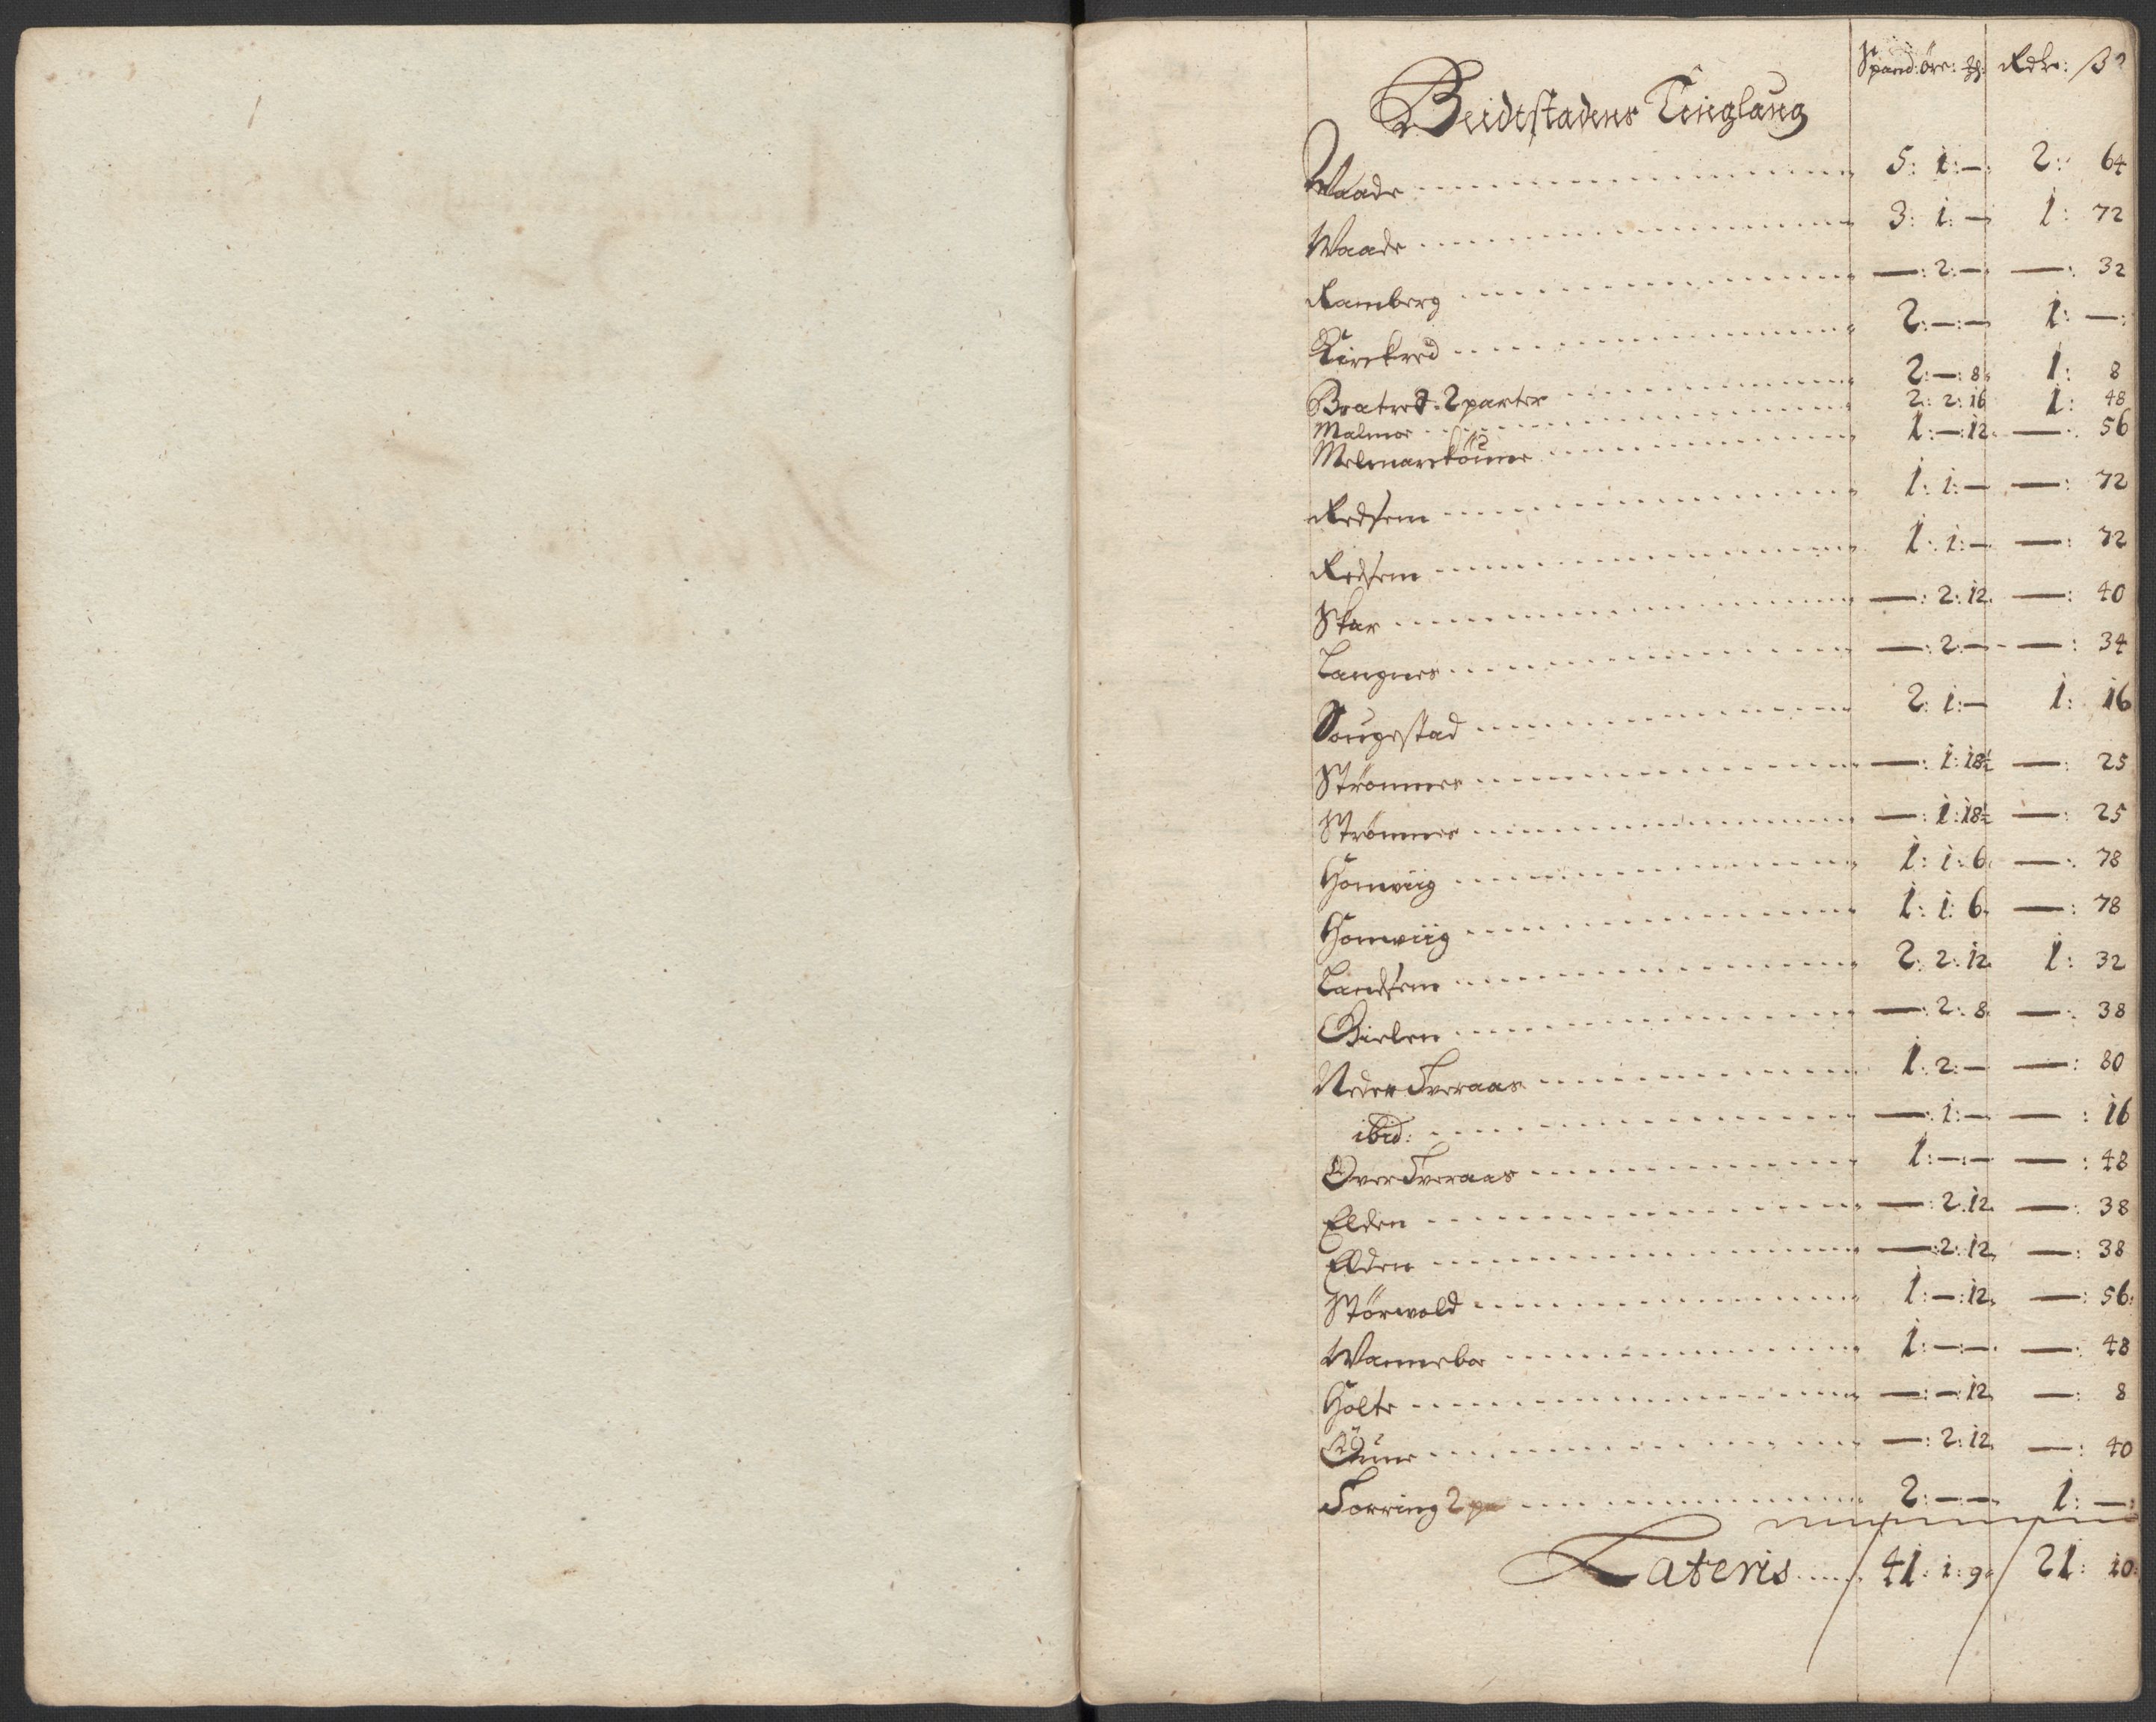 Spand: øre: ℔: Rdr: ß
Beidtstadens Tinglaug
Waade 5: 1: — 2: 64
Waade 3: 1: — 1: 72
Ramberg —: 2: — —: 32
Kirckred 2: —: — 1: —:
Bratred. 2 parter 2: —: 8 1: 8
Malmoe 2: 2: 16 1: 48
1: —: 12 —: 56
Redsem 1: 1: — —: 72
Redsem 1: 1: — —: 72
Skar —: 2: 12 —: 40
Langnes —: 2: — —: 34
Sougestad 2: 1: — 1: 16
Strömmes —: 1: 18½ —: 25
Strömmes —: 1: 18½ —: 25
Homviig 1: 1: 6 —: 78
Homviig 1: 1: 6 —: 78
Landsem 2: 2: 12 1: 32
Bielen —: 2: 8 —: 38
Neder Tveraas 1: 2: — —: 80
ibid: —: 1: — —: 16
Over Tveraas 1: —: — —: 48
Elden —: 2: 12 —: 38
Elden —: 2: 12 —: 38
Störvold 1: —: 12 —: 56
Wanneboe 1: —: — —: 48
Holte —: —: 12 —: 8
—: 2: 12 —: 40
Torring 2 pa 2: —: — 1: —:
Lateris 41: 1: 9 21: 10